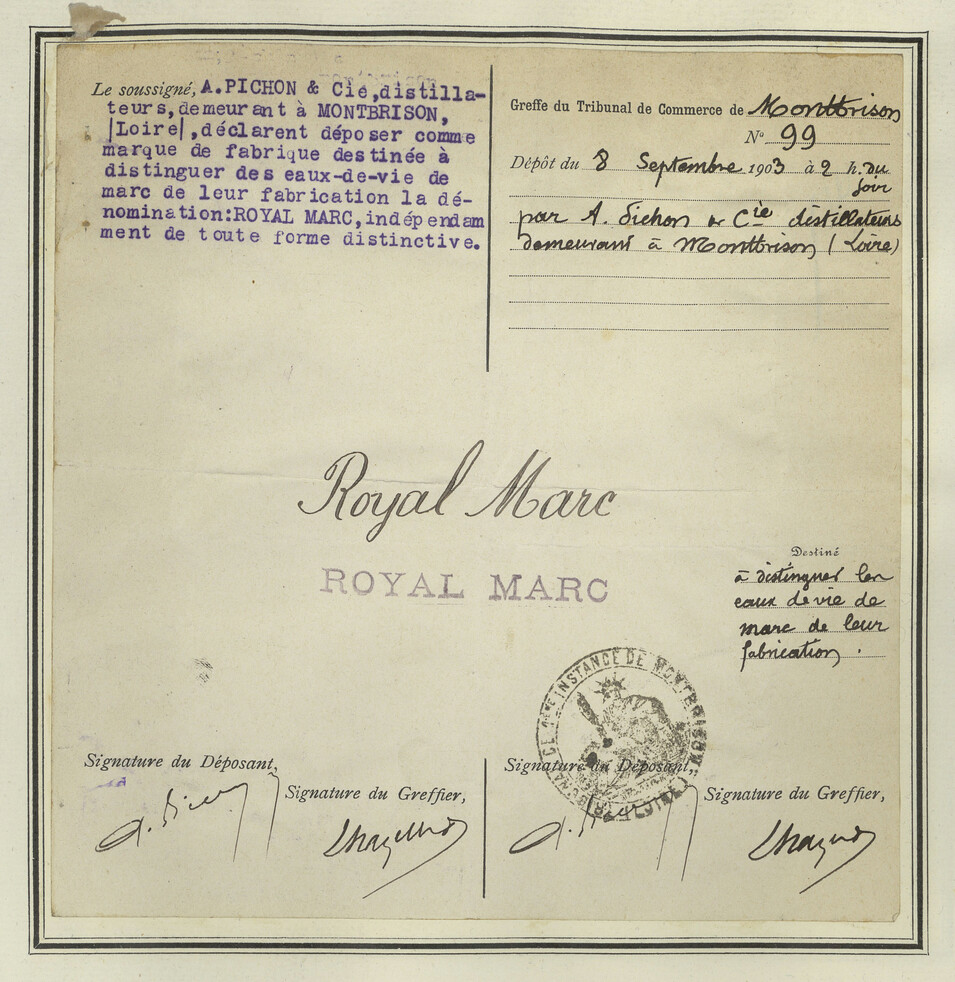 Le soussigné, A.PICHON & Cie,distilla-
teurs,demeurant à MONTBRISON,
|Loire|,déclarent déposer comme
marque de fabrique destinée à
distinguer des eaux-de-vie de
marc de leur fabrication la dé-
nomination:ROYAL MARC,indépendam
ment de toute forme distinctive.
Greffe du Tribunal de Commerce de Montbrison
N° 99
Dépôt du 8 Septembre 1903 à 2 h. du
soir
par A. Pichon & Cie distillateurs
demeurant à Montbrison (Loire)
Royal Marc
ROYAL MARC
Destiné
à distinguer les
eaux de vie de
marc de leur
fabrication .
INSTANCE DE MONTBRISON
(LOIRE)
Signature du Déposant,
Signature du Greffier,
Signature du Déposant,
Signature du Greffier,